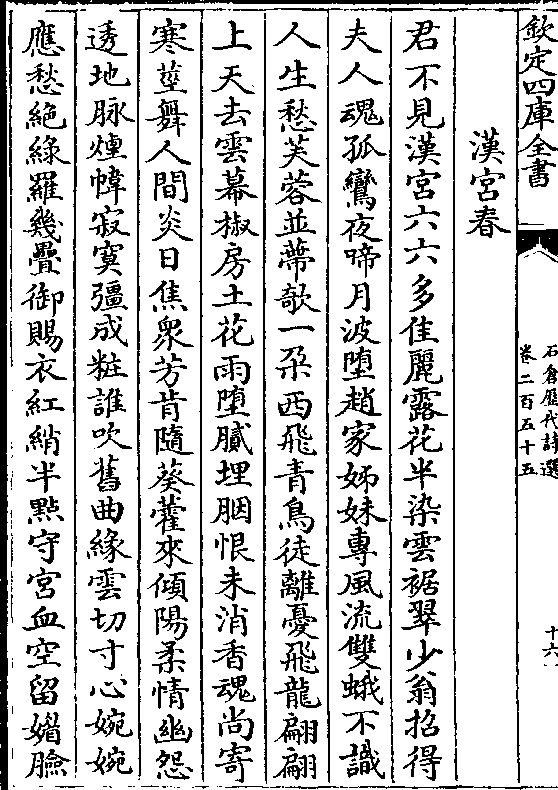 欽定四庫全書
石倉歷代詩選
卷二百五十五
十六
漢宮春
君不見漢宮六六多佳麗露花半染雲裾翠少翁招得
夫人魂孤鸞夜啼月波墮趙家姊妹專風流雙蛾不識
人生愁芙蓉並蔕欹一朶西飛青鳥徒離憂飛龍翩翩
上天去雲幕椒房土花雨墮膩埋胭恨未消香魂尚寄
寒莖舞人間炎日焦衆芳肯隨葵藿來傾陽柔情幽怨
透地脉煙幃寂寞彊成粧誰吹舊曲緣雲切寸心婉婉
應愁絶綠羅幾疊御賜衣紅綃半點守宮血空留媚臉